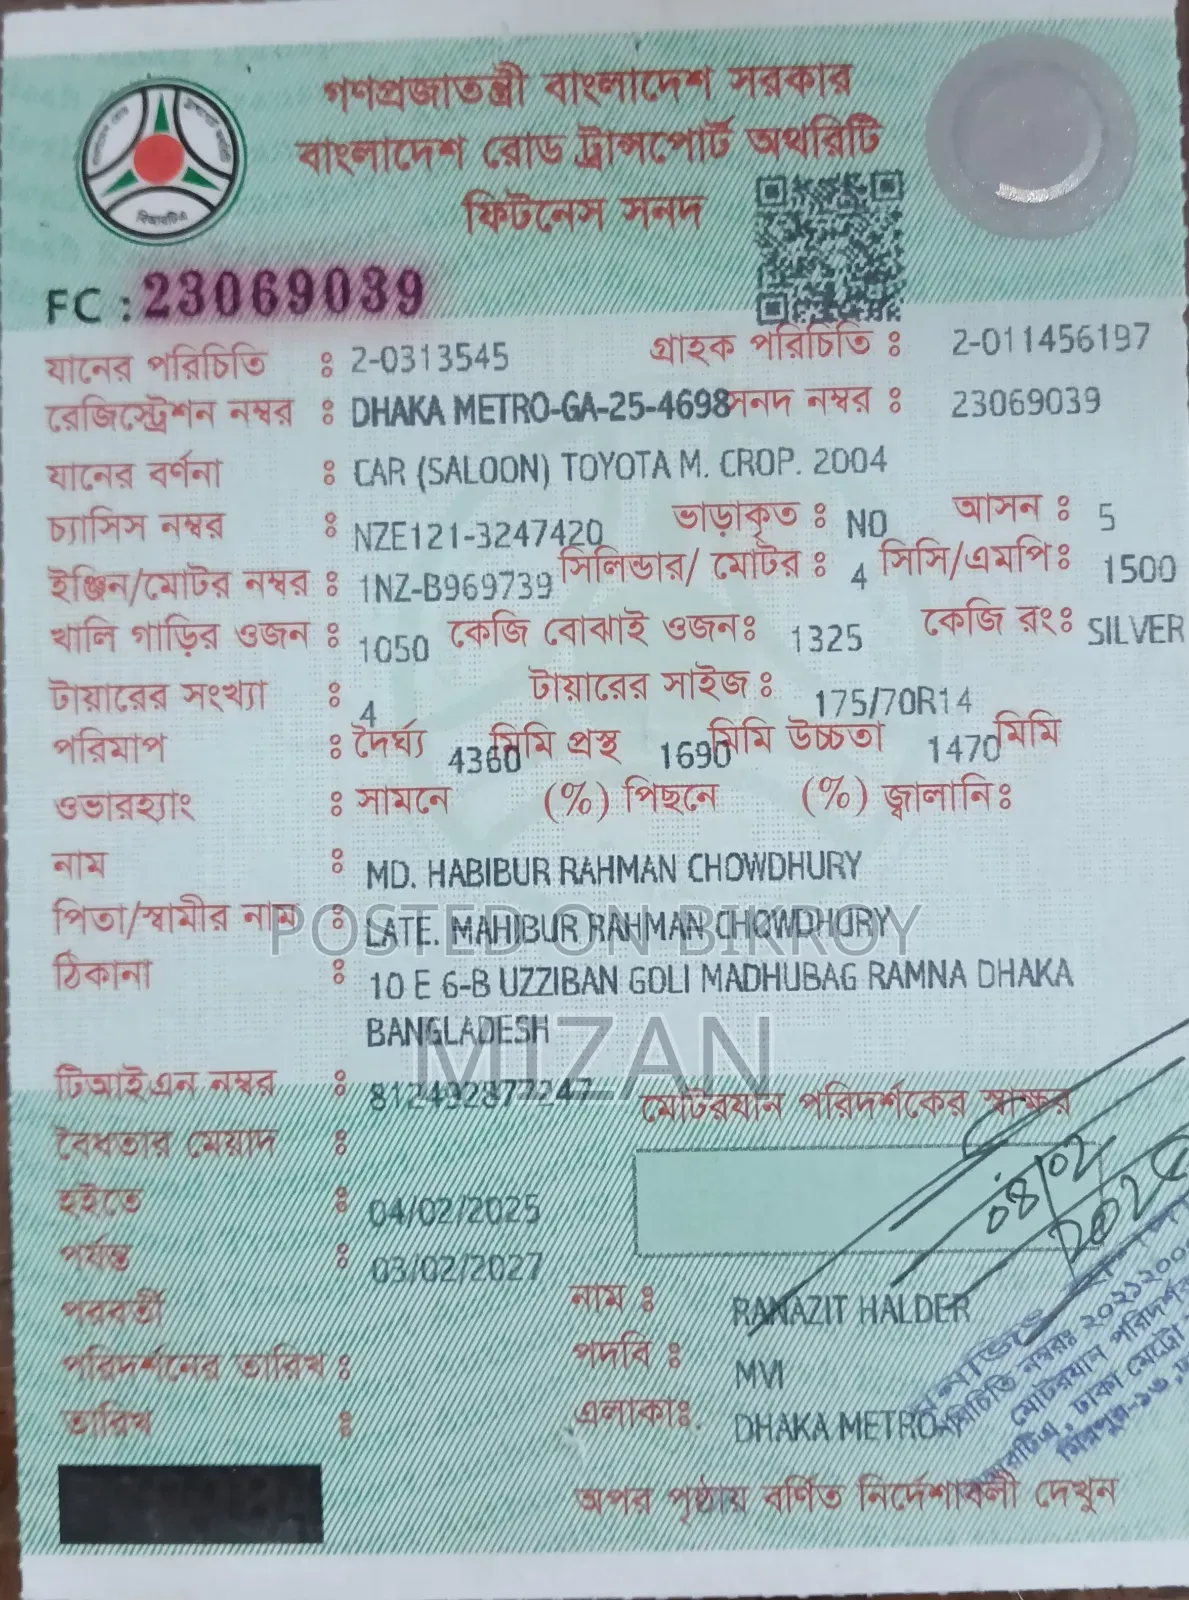 গণপ্রজাতন্ত্রী বাংলাদেশ সরকার
বাংলাদেশ রোড ট্রান্সপোর্ট অথরিটি
ফিটনেস সনদ
বিআরটিএ
FC : 23069039
যানের পরিচিতি : 2-0313545 গ্রাহক পরিচিতি : 2-011456197
রেজিস্ট্রেশন নম্বর : DHAKA METRO-GA-25-4698 সনদ নম্বর : 23069039
যানের বর্ণনা : CAR (SALOON) TOYOTA M. CROP. 2004
চ্যাসিস নম্বর : NZE121-3247420 ভাড়াকৃত : NO আসন : 5
ইঞ্জিন/মোটর নম্বর : 1NZ-B969739 সিলিন্ডার/ মোটর : 4 সিসি/এমপি: 1500
খালি গাড়ির ওজন : 1050 কেজি বোঝাই ওজন: 1325 কেজি রং: SILVER
টায়ারের সংখ্যা : 4 টায়ারের সাইজ : 175/70R14
পরিমাপ : দৈর্ঘ্য 4360 মিমি প্রস্থ 1690 মিমি উচ্চতা 1470 মিমি
ওভারহ্যাং : সামনে (%) পিছনে (%) জ্বালানি:
নাম : MD. HABIBUR RAHMAN CHOWDHURY
পিতা/স্বামীর নাম : LATE. MAHIBUR RAHMAN CHOWDHURY
POSTED ON BIKROY
ঠিকানা : 10 E 6-B UZZIBAN GOLI MADHUBAG RAMNA DHAKA
BANGLADESH
MIZAN
টিআইএন নম্বর : 812492877247
মোটরযান পরিদর্শকের স্বাক্ষর
বৈধতার মেয়াদ :
হইতে : 04/02/2025
08/02
পর্যন্ত : 03/02/2027
পরবর্তী
পরিদর্শনের তারিখ :
তারিখ :
নাম : RANAZIT HALDER
পদবি : MVI
এলাকা: DHAKA METRO-1
মোটরযান পরিদর্শক
অপর পৃষ্ঠায় বর্ণিত নির্দেশাবলী দেখুন